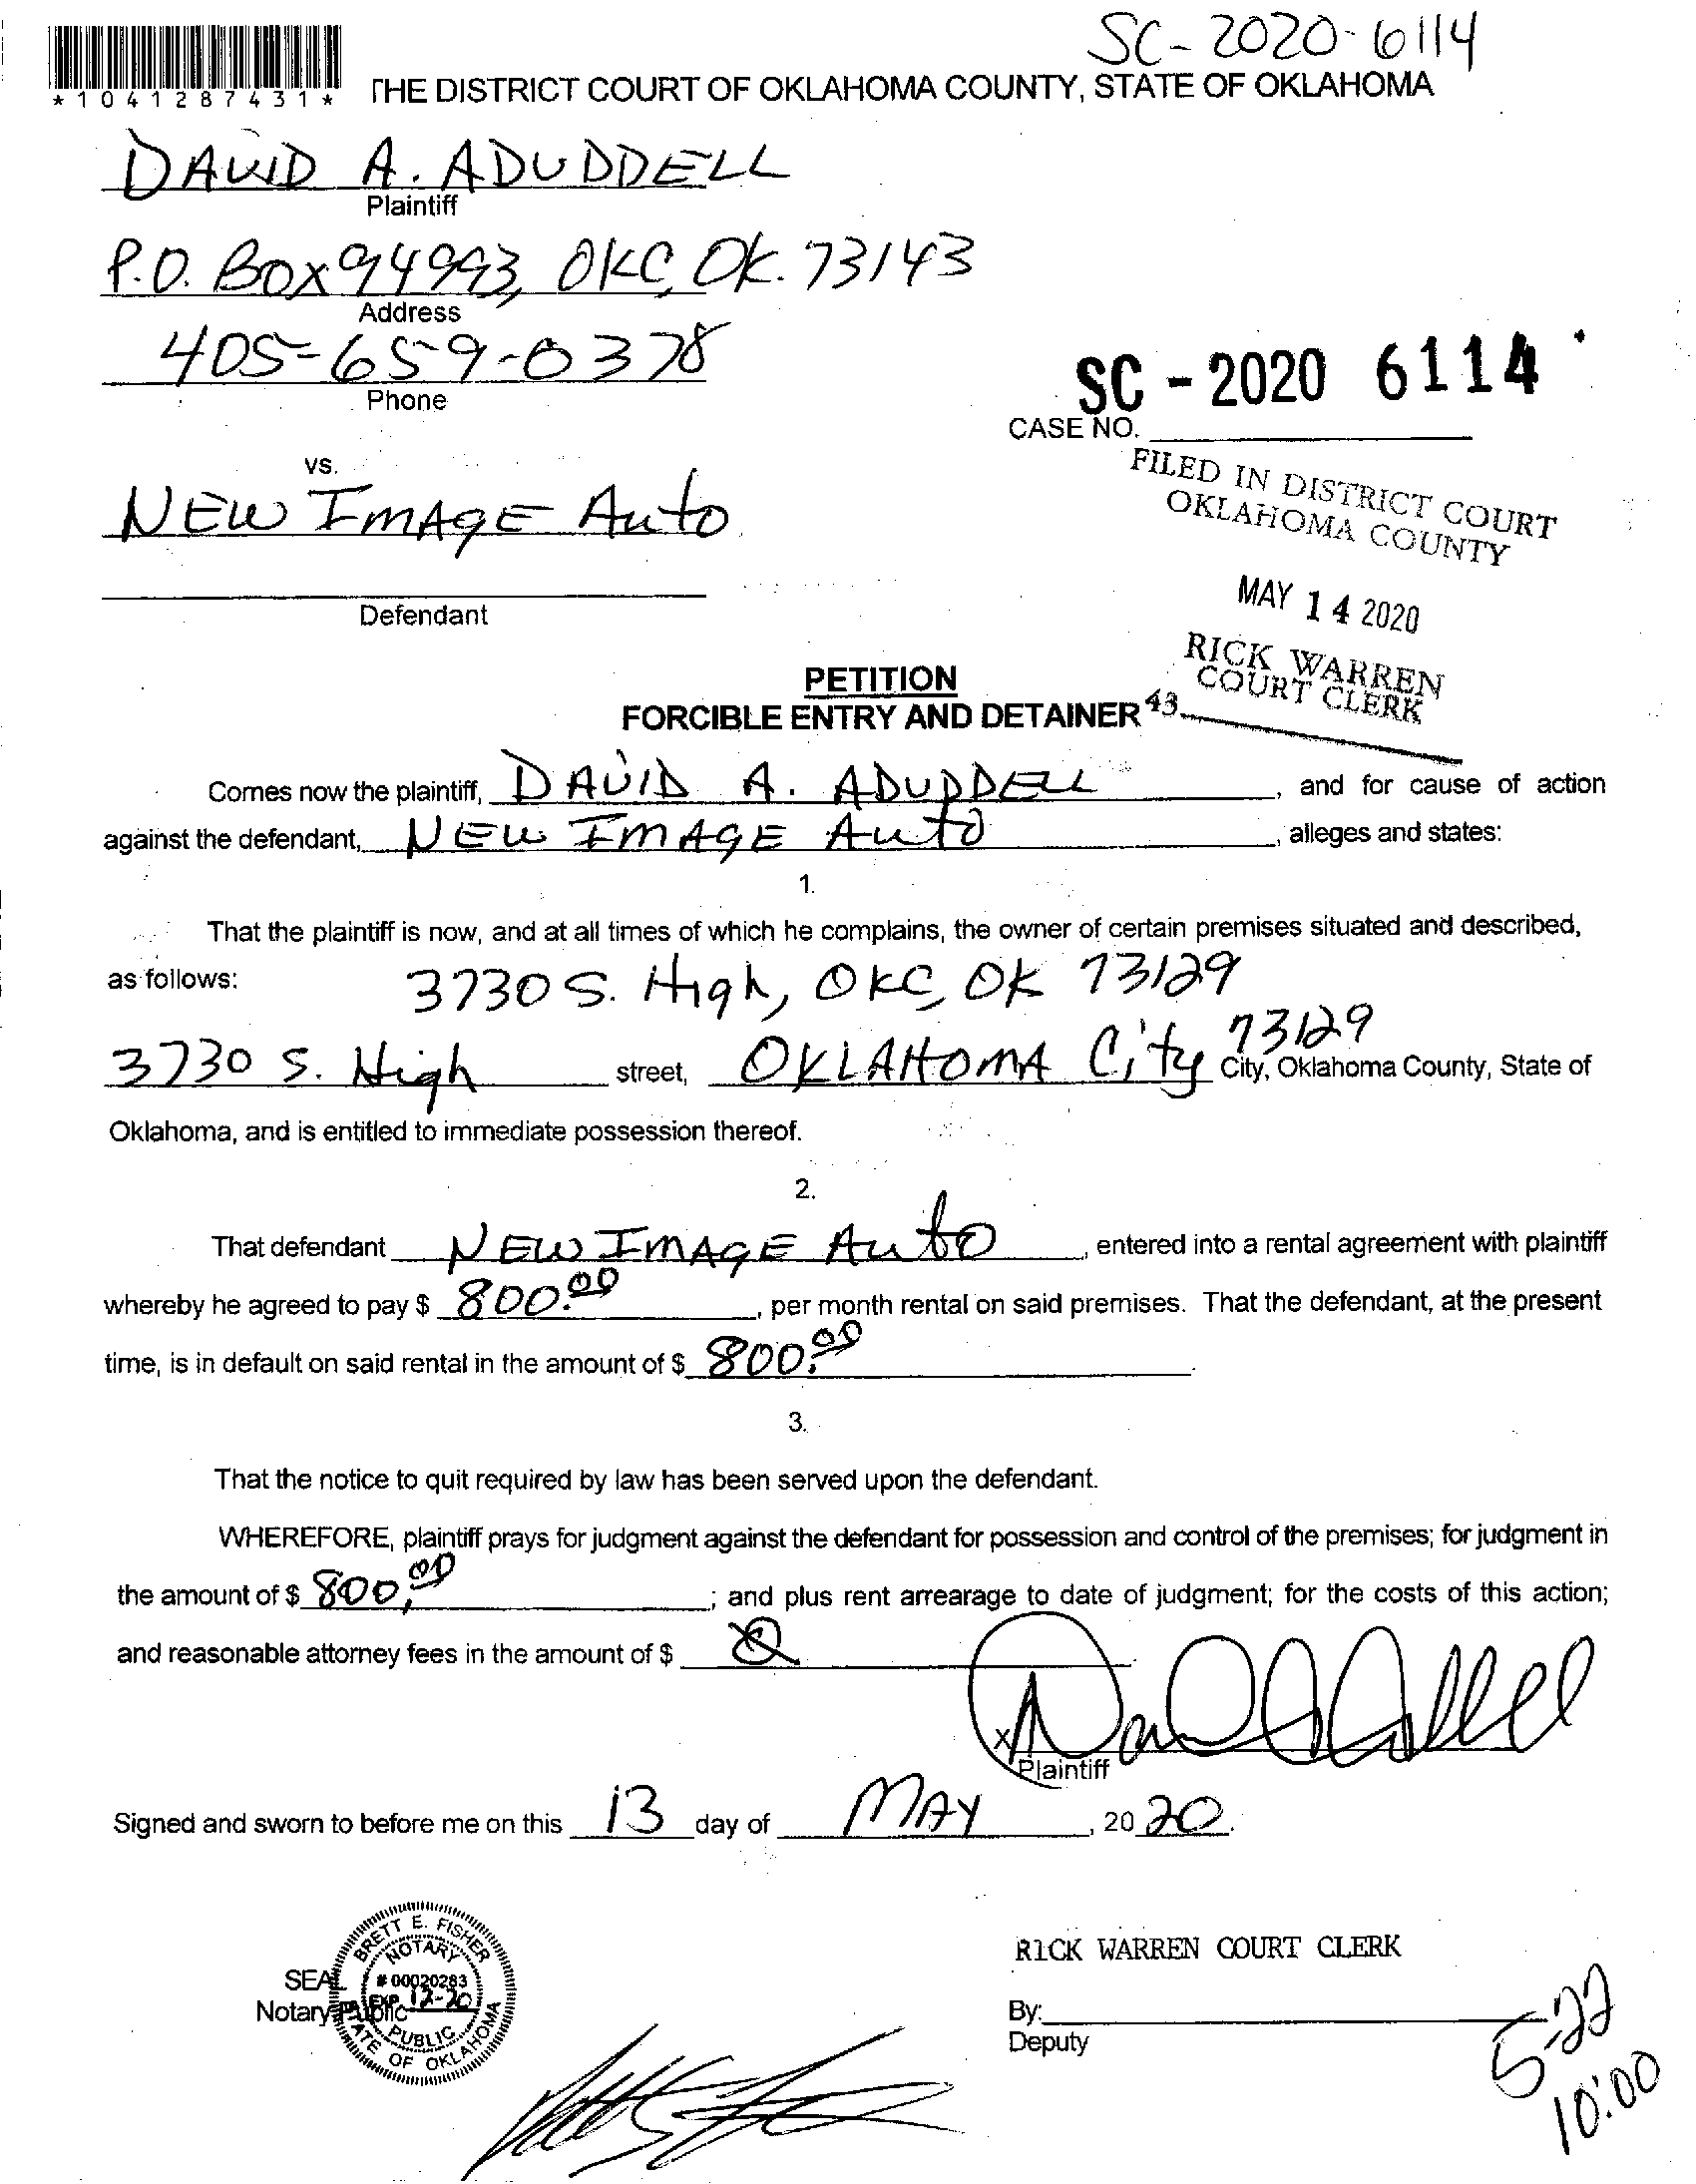 SC-2020-6114
*1041287431*
THE DISTRICT COURT OF OKLAHOMA COUNTY, STATE OF OKLAHOMA
DAVID A. ADUDDELL
Plaintiff
P.O. Box 94993, OKC, OK. 73143
Address
405-659-0378
Phone
SC - 2020 6114
CASE NO.
vs.
FILED IN DISTRICT COURT
OKLAHOMA COUNTY
NEW IMAGE Auto
MAY 14 2020
Defendant
RICK WARREN
COURT CLERK
PETITION
FORCIBLE ENTRY AND DETAINER 43
Comes now the plaintiff, DAVID A. ADUDDELL, and for cause of action
against the defendant, NEW IMAGE Auto, alleges and states:
1.
That the plaintiff is now, and at all times of which he complains, the owner of certain premises situated and described,
as follows: 3730 S. High, OKC, OK 73129
3730 S. High street, OKLAHOMA City 73129 City, Oklahoma County, State of
Oklahoma, and is entitled to immediate possession thereof.
2.
That defendant NEW IMAGE Auto, entered into a rental agreement with plaintiff
whereby he agreed to pay $ 800.00, per month rental on said premises. That the defendant, at the present
time, is in default on said rental in the amount of $ 800.00.
3.
That the notice to quit required by law has been served upon the defendant.
WHEREFORE, plaintiff prays for judgment against the defendant for possession and control of the premises; for judgment in
the amount of $ 800.00; and plus rent arrearage to date of judgment; for the costs of this action;
and reasonable attorney fees in the amount of $
X
Plaintiff
Signed and sworn to before me on this 13 day of MAY, 2020.
BRETT E. FISHER
NOTARY
# 00020283
EXP. 12-20
PUBLIC
STATE OF OKLAHOMA
SEAL
Notary Public
RICK WARREN COURT CLERK
By:
Deputy
5-22
10:00